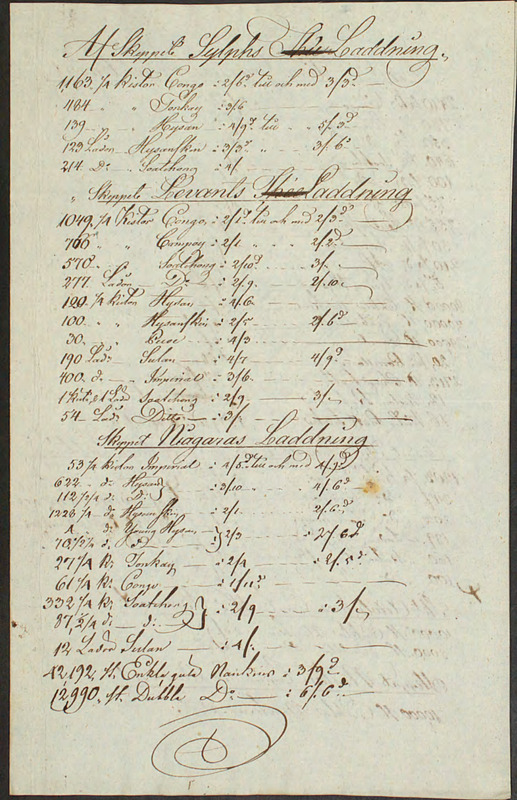 Af Skeppets Sylphs Thee Laddning.
1163. 1/4 Kistor Congo : 2/6d till och med 3/3d
484 " " Tonkay : 3/6
139 " " Hysan : 4/9d till " " 5/3d
123 Lådor Hysanskin : 3/3d " " 3/6
214 Do " Soatchong : 4/
" Skeppets Levants Thee Laddning
1049. 1/4 Kistor Congo : 2/1d till och med 2/3d
766 " " Campoy : 2/1 " " 2/2d
570 " " Soatchong : 2/10d 3/
277 Lådor Do : 2/9 2/10
120. 1/4 Kistor Hysan : 4/6
100. " " Hysanskin : 2/5 2/6d
30. " " Pecoe : 4/3
190 Låd: Sulan : 4/7 4/9d
400 d: " Imperial : 3/6
1 Kista, & 1 Låd Soatchong : 2/9 3/
54 Låd: Ditto : 3/
Skeppet Niagaras Laddning
53 1/4 Kistor Imperial : 4/8d till och med 4/9d
622 " d: Hysan
112 d: D: : 3/10 " 4/6d
1228 1/4 d: Hysanskin : 2/1 2/6d
d: Young Hysan
d: : 2/3 2/6d
27 1/4 K: Tonkay : 2/4 : 2/5d
61 1/4 K: Congo : 1/11d
332 1/4 K: Soatchong : 2/9 : 3/
87, 2/4 d: d:
12 Lådor Sulan : 4/
42,192. st. Enkla gula Nankins : 3/9d
12990. st. Dubble Do : 6/6d